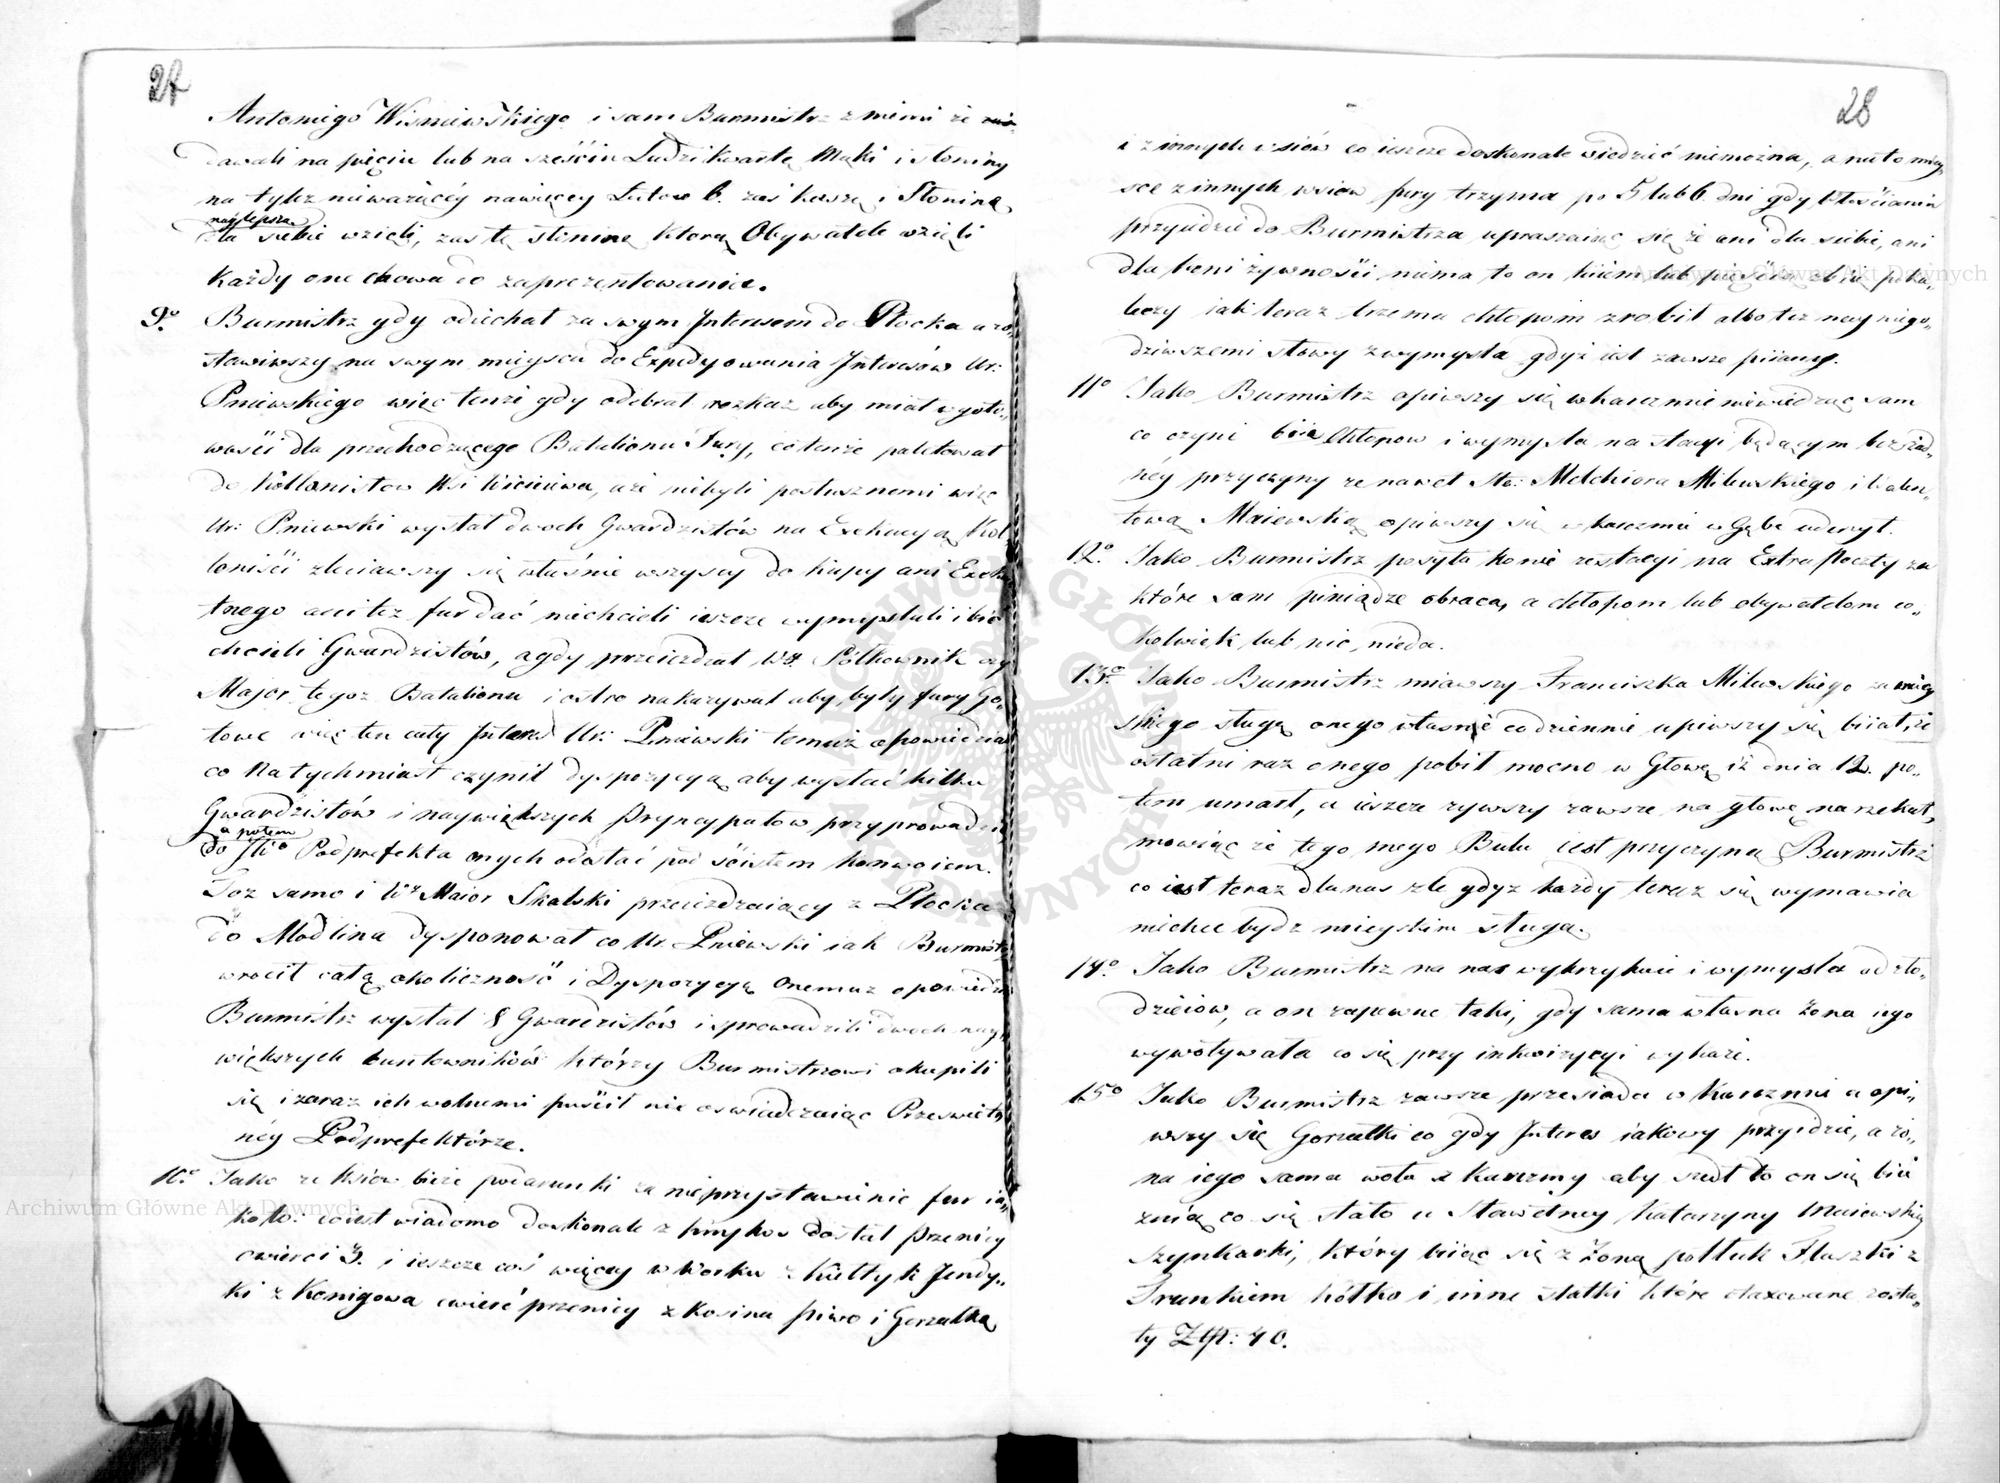 27
Antoniego Wisniewskiego i sam Burmistrz z niemi że
dawali na pięciu lub na sześciu Ludzi kwartę Mąki i słoniny
na tylez nieważącéy nawięcey Lutow 6. zaś kaszę i Słoninę
naylepszą
dla siebie wzięli, zas tę słoninę ktorą Obywatele wzięli
każdy one chowa do zaprezentowania.
9o Burmistrz gdy odiechał za swym Interesem do Płocka a zo„
stawiwszy na swym mieyscu do Expedyowania Interesów Ur:
Pniewskiego więc tenże gdy odebrał rozkaz aby miał w goto„
wości dla przechodzącego Batalionu Fury, co tenże paletował
do kollonistow Wsi Wiciniewa, a że niebyli posłusznemi więc
Ur: Pniewski wysłał dwoch Gwardzistów na Exekucyą Kol
loniści zleciawszy się właśnie wszyscy do kupy ani Exek
tnego ani tez fur dać niechcieli ieszcze wymyslali i bić
chcieli Gwardzistów, a gdy przeiezdzał Wy. Półkownik czy
Major tegoz Batalionu i ostro nakazywał aby były fury go„
towe więc ten cały Interes Ur: Pniewski temuż opowiedział
co Natychmiast czynił dyspozycyą aby wysłać kilku
Gwardzistów i naywiększych Pryncypałow przyprowadzić
a potem
do JWo Podprefekta onych odesłać pod ścisłem konwoiem.
Toz samo i Wy Maior Skalski przeiezdzaiący z Płocka
do Modlina dysponował co Ur. Pniewski iak Burmistrz
wrocił całą okoliczność i Dyspozycyą Onemuz opowiedział
Burmistrz wysłał 8 Gwardzistów i sprowadzili dwoch nay„
większych buntowników którzy Burmistrzowi okupili
się i zaraz ich wolnemi puścił nie oswiadczaiąc Prześwietn
néy Podprefektórze.
10o Jako ze Wsiow bierze podarunki za nieprzystawienie fur ia„
koto: co iest wiadomo doskonale z dostał Przenicy
cwierci 3. i ieszcze coś więcey w Worku z Indy„
ki z Konigowa cwierć przenicy z Kosina Piwo i Gorzałkę
28
i z innych wsiów co ieszcze doskonale wiedzieć niemożna, a na to miey
sce z innych wsiow fury trzyma po 5 lub 6 dni gdy Włościanin
przyidzie do Burmistrza upraszaiąc się że ani dla siebie, ani
dla koni żywności niema to on kiiem lub pięścią zbiie poka„
leczy iak teraz trzema chłopom zrobił albo tez nay niego„
dziwszemi słowy zwymysla gdyż iest zawsze piiany.
11o Jako Burmistrz opiwszy się w karczmie niewiedząc sam
co czyni biie Chłopow i wymysla na stacyi będącym bez żad„
néy przyczyny ze nawet Sta: Melchiora Milewskiego i Walen„
tową Maiewską opiwszy się w karczmie w Gębę uderzył.
12o Jako Burmistrz posyła konie ze stacyi na Extra Poczty za
które sam piniądze obraca, a chłopom lub obywatelom co„
kolwiek lub nic, nieda.
13o Jako Burmistrz miawszy Franciszka Milewskiego za miey
skiego sługę onego własnie codziennie upiwszy się biiał, że
ostatni raz onego pobił mocno w Głowę iż dnia 12. po„
tem umarł, a ieszcze zywszy zawsze na głowę narzekał,
mowiąc że tego mego Bulu iest przyczyną Burmistrz
co iest teraz dla nas zle gdyz kazdy teraz się wymawia
niechce bydz mieyskim sługą.
14o Jako Burmistrz na nas wykrzykuie i wymysla od zło„
dzieiów, a on zapewne taki, gdy sama własna Żona iego
wywoływała co się przy inkwizycyi wykaże.
15o Jako Burmistrz zawsze przesiada w Karczmie a opi„
wszy się Gorzałki co gdy Interes iakowy przyidzie, a żo„
na iego sama woła z Karczmy aby szedł to on się bie
z nią co się stało u Sławetney Katarzyny Maiewskiey
szynkarki, który biiąc się z Żoną potłuk Flaszki z
Trunkiem kółko i inne statki które otaxowane zosta„
ły Złp: 40.